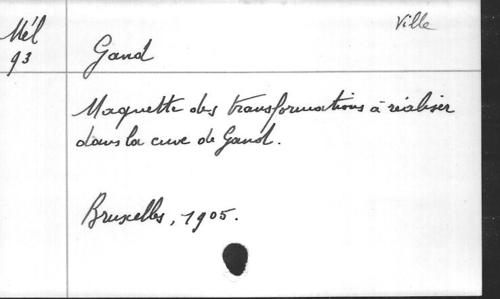 Ville
Mél
93
Gand
Maquette des transformations à réaliser
dans la cuve de Gand.
Bruxelles, 1905.